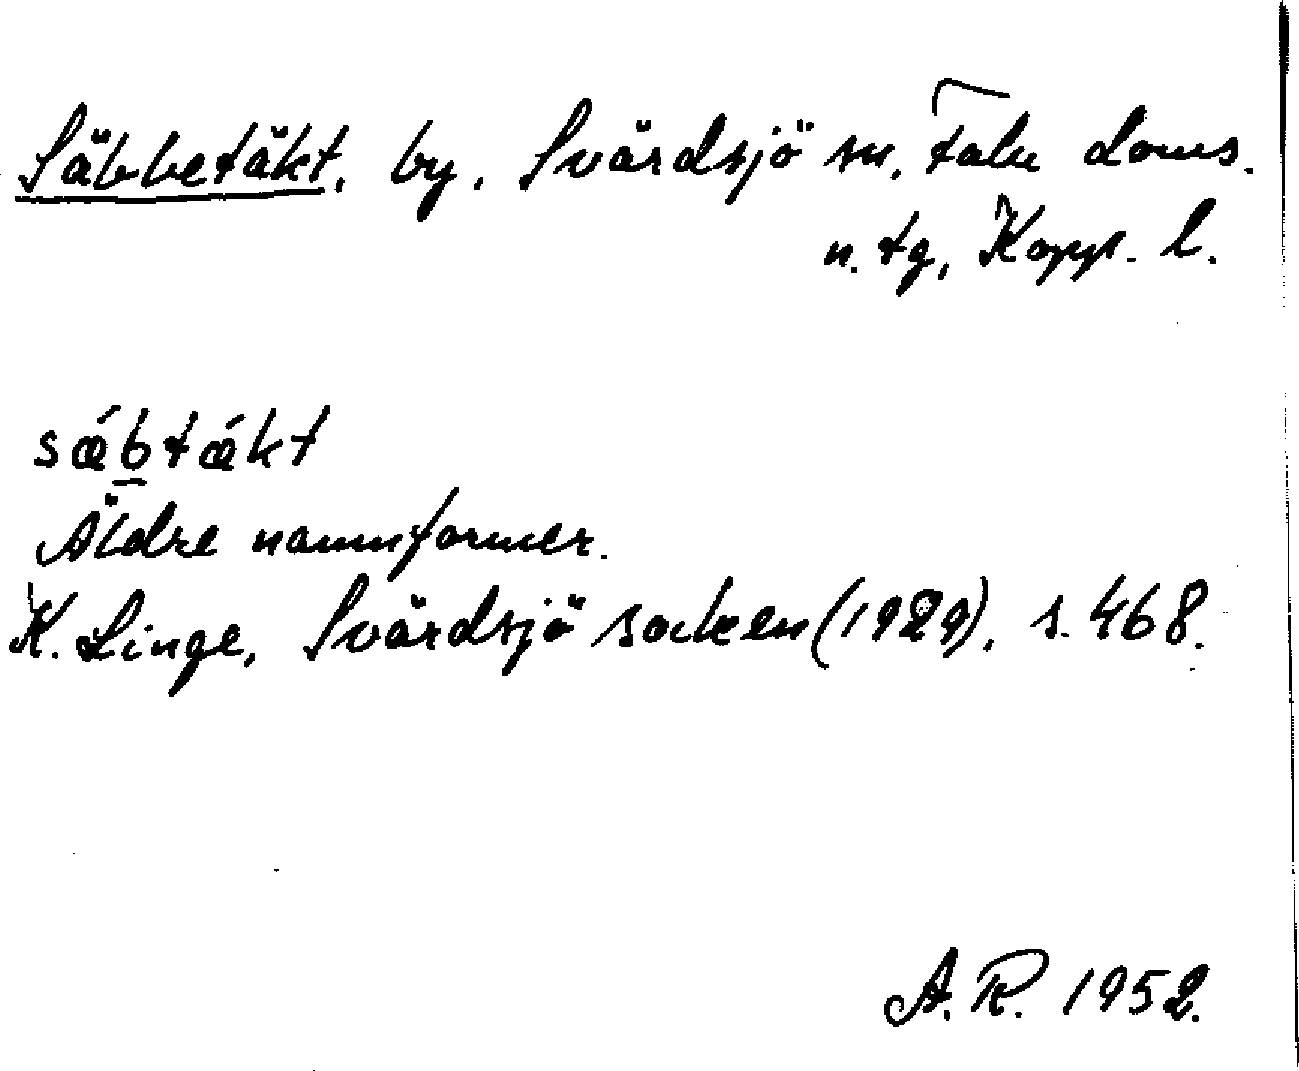 Säbbetäkt, by, Svärdsjö sn, Falu doms.
n. tg, Kopp. l.
sǽb̲tǽkt
Äldre namnformer.
K. Linge, Svärdsjö socken (1929), s. 468.
A. R. 1952.